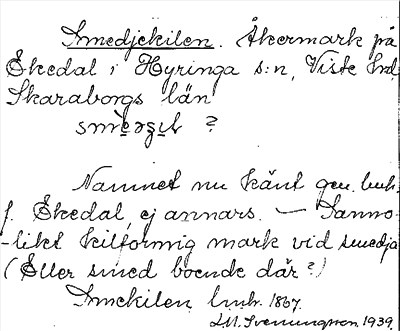 Smedjekilen. Åkermark på
Ekedal i Hyringa s:n, Viste hd,
Skaraborgs län
?
Namnet nu känt gen. lmh.
f. Ekedal, ej annars. — Sanno-
-likt kilformig mark vid smedja
(Eller smed boende där?)
Smekilen lmh. 1867.
1939.